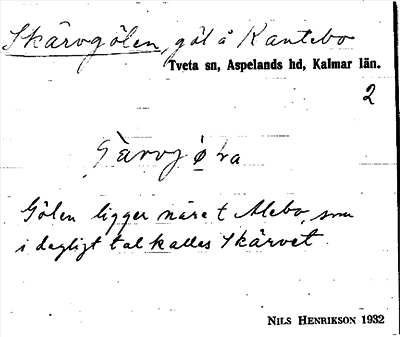 Skärvgölen, göl å Kantebo
Tveta sn, Aspelands hd, Kalmar län.
2
Gölen ligger näre t Alebo, som
i dagligt tal kalles Skärvet
NILS HENRIKSON 1932